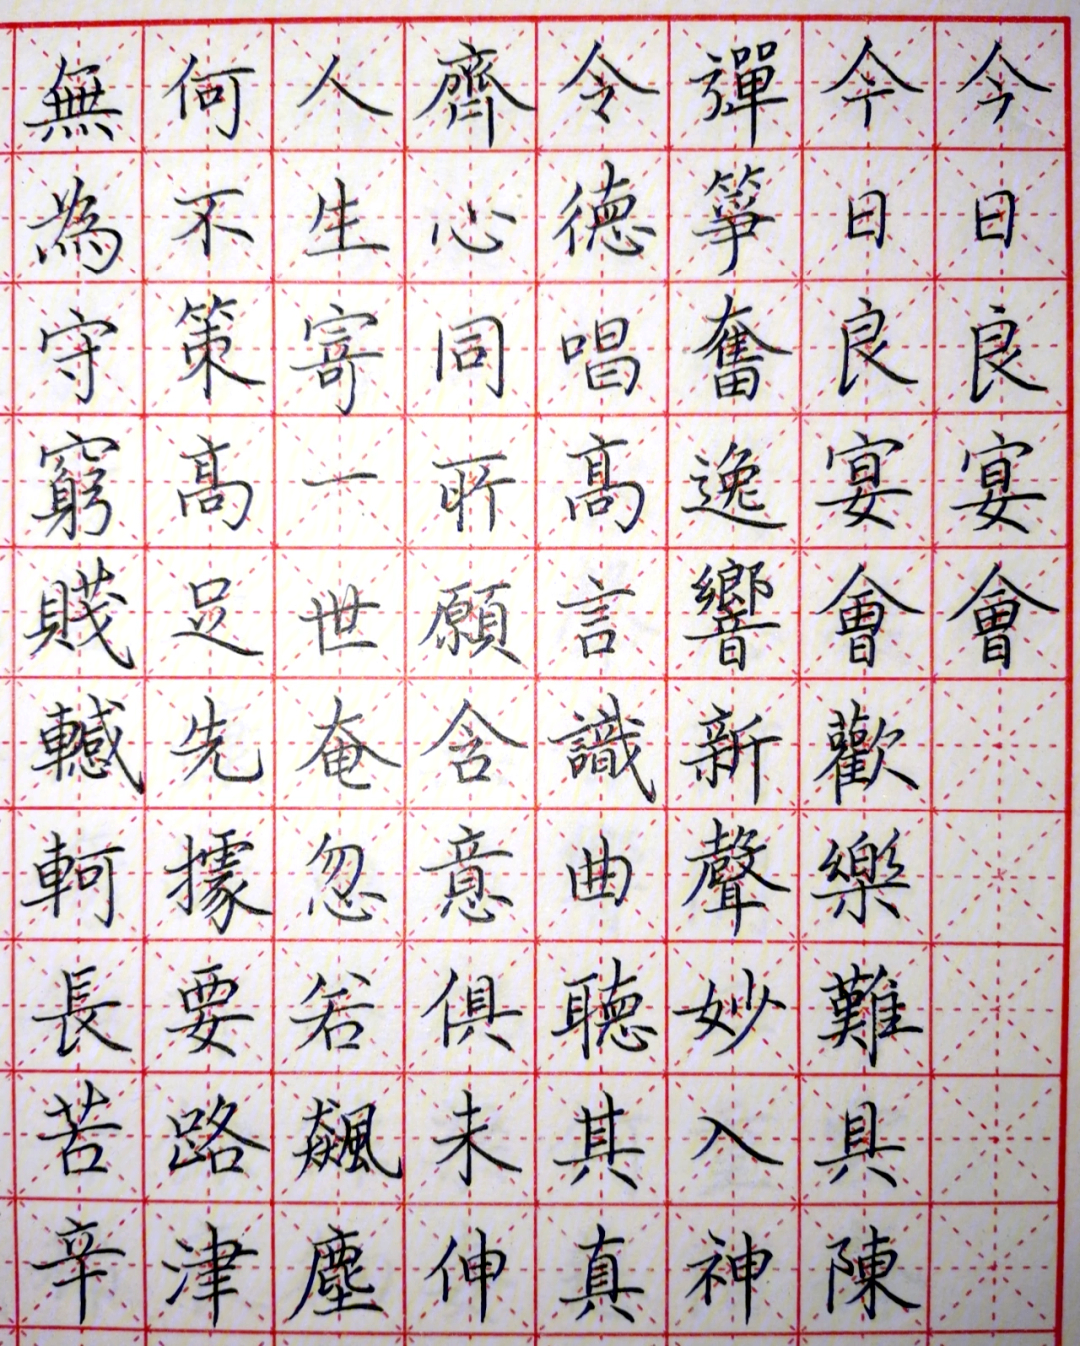 今日良宴會
今日良宴會歡樂難具陳
彈箏奮逸響新聲妙入神
令德唱高言識曲聽其真
齊心同所願含意俱未伸
人生寄一世奄忽若飆塵
何不策高足先據要路津
無為守窮賤轗軻長苦辛